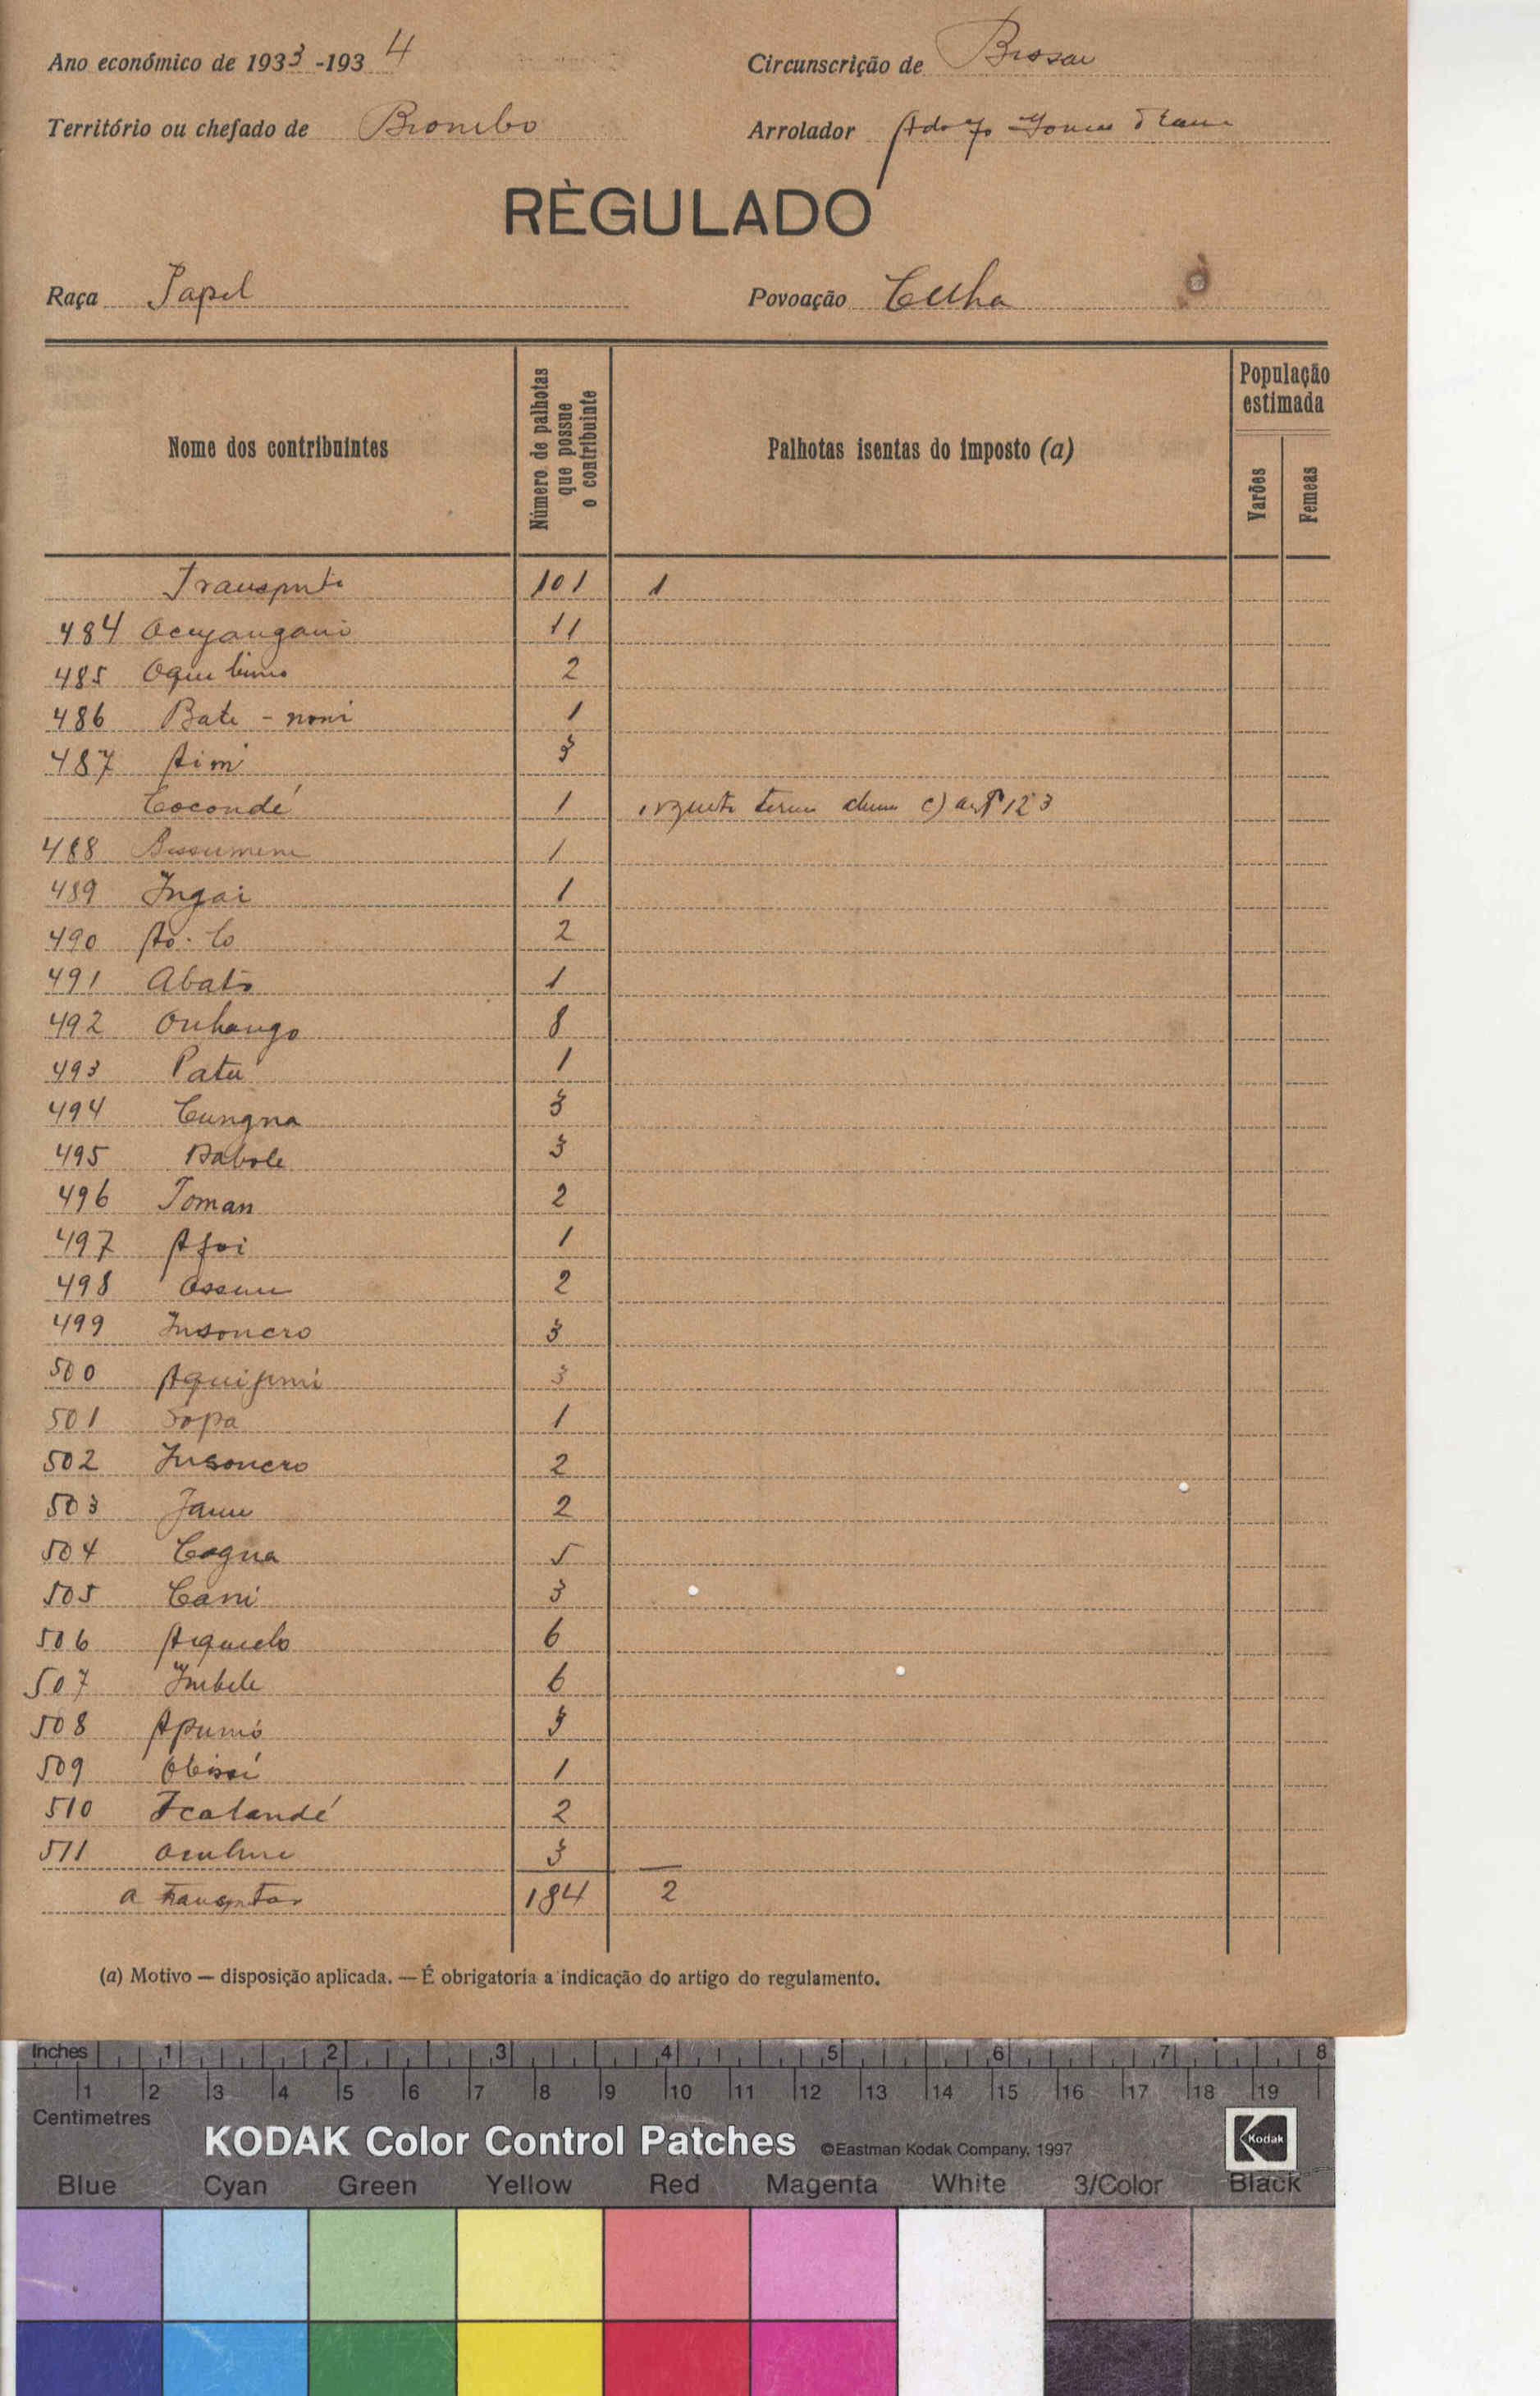 Ano económico de 1933-1934
Circunscrição de
Território ou chefado de Biombo
Arrolador Adolfo Gomes
RÈGULADO
Raça Papel
Povoação Cuha
Nome dos contribuintes
Número de palhotas que possue o contribuinte
Palhotas isentas do imposto (a)
População estimada
Varões
Femeas
Transporte 101 1
484 11
485 2
486 Bate - noni 1
487 Aim 3
Cocondé 1 c) artº 123
488 Bussumene 1
489 Ingai 1
490 Ao-Co 2
491 Abato 1
492 Onhango 8
493 Patu 1
494 Cungna 3
495 Babole 3
496 Toman 2
497 Afoi 1
498 2
499 Insoncro 3
500 3
501 Sopa 1
502 Insoncro 2
503 2
504 Cogna 5
505 Cani 3
506 6
507 Imbele 6
508 Apumó 3
509 1
510 Icatandé 2
511 3
a transportar 184 2
(a) Motivo — disposição aplicada. — É obrigatoria a indicação do artigo do regulamento.
Inches 1 2 3 4 5 6 7 8
1 2 3 4 5 6 7 8 9 10 11 12 13 14 15 16 17 18 19
Centimetres
KODAK Color Control Patches ©Eastman Kodak Company, 1997 Kodak
Blue Cyan Green Yellow Red Magenta White 3/Color Black